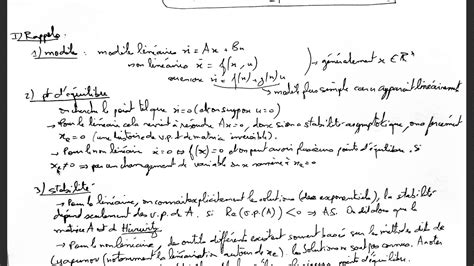 I) Rappels.
1) modèle : modèle linéaire ẋ = Ax + Bu
non linéaire ẋ = f(x, u) → généralement x ∈ ℝⁿ
ou encore ẋ = f(x) + g(x)u
→ modèle plus simple car u apparaît linéairement
2) pt d'équilibre
on cherche le point tel que ẋ = 0 (et on suppose u = 0)
→ Pour le linéaire cela revient à résoudre Ax = 0, donc si on a stabilité asymptotique, on a forcément
xₑ = 0 (une histoire de v.p et de matrice inversible).
→ Pour le non linéaire ẋ = 0 ⇔ f(x) = 0 et on peut avoir plusieurs points d'équilibre. Si
xₑ ≠ 0 → par un changement de variable on ramène à xₑ = 0
3) stabilité
→ Pour le linéaire, on connait explicitement la solution (des exponentielles), la stabilité
dépend seulement des v.p. de A. si Re(v.p(A)) < 0 ⇒ A.S. On dit alors que la
matrice A est de Hürwitz.
→ Pour le non linéaire, des outils différents existent souvent basés sur la méthode dite de
Lyapunov (notamment la linéarisation autour de xₑ). La solution n'est pas connue. A notes
d'équilibre.